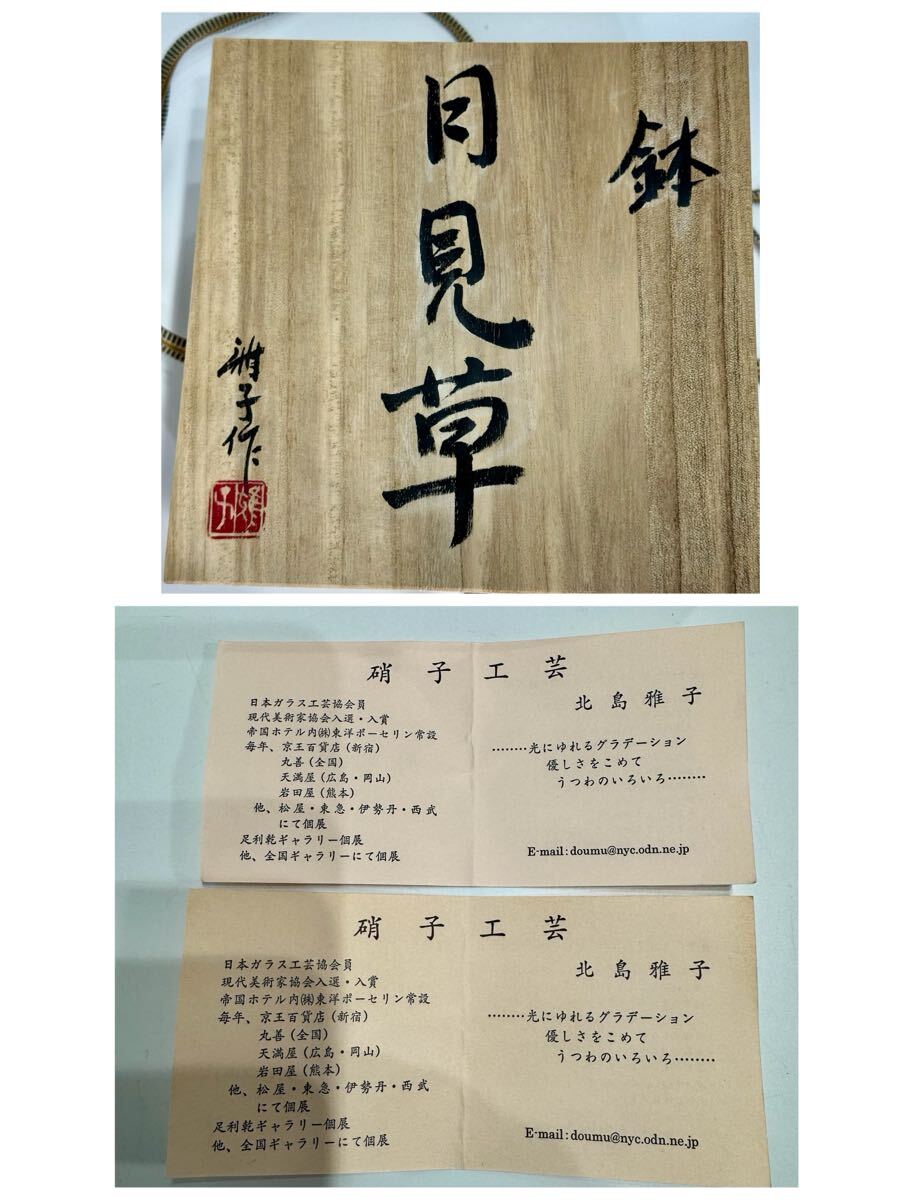 鉢
月見草
雅子作
硝子工芸
北島雅子
日本ガラス工芸協会員
現代美術家協会入選・入賞
帝国ホテル内㈱東洋ポーセリン常設
毎年、京王百貨店(新宿)
丸善(全国)
天満屋(広島・岡山)
岩田屋(熊本)
他、松屋・東急・伊勢丹・西武
にて個展
足利乾ギャラリー個展
他、全国ギャラリーにて個展
………光にゆれるグラデーション
優しさをこめて
うつわのいろいろ………
E-mail:doumu@nyc.odn.ne.jp
硝子工芸
北島雅子
日本ガラス工芸協会員
現代美術家協会入選・入賞
帝国ホテル内㈱東洋ポーセリン常設
毎年、京王百貨店(新宿)
丸善(全国)
天満屋(広島・岡山)
岩田屋(熊本)
他、松屋・東急・伊勢丹・西武
にて個展
足利乾ギャラリー個展
他、全国ギャラリーにて個展
………光にゆれるグラデーション
優しさをこめて
うつわのいろいろ………
E-mail:doumu@nyc.odn.ne.jp